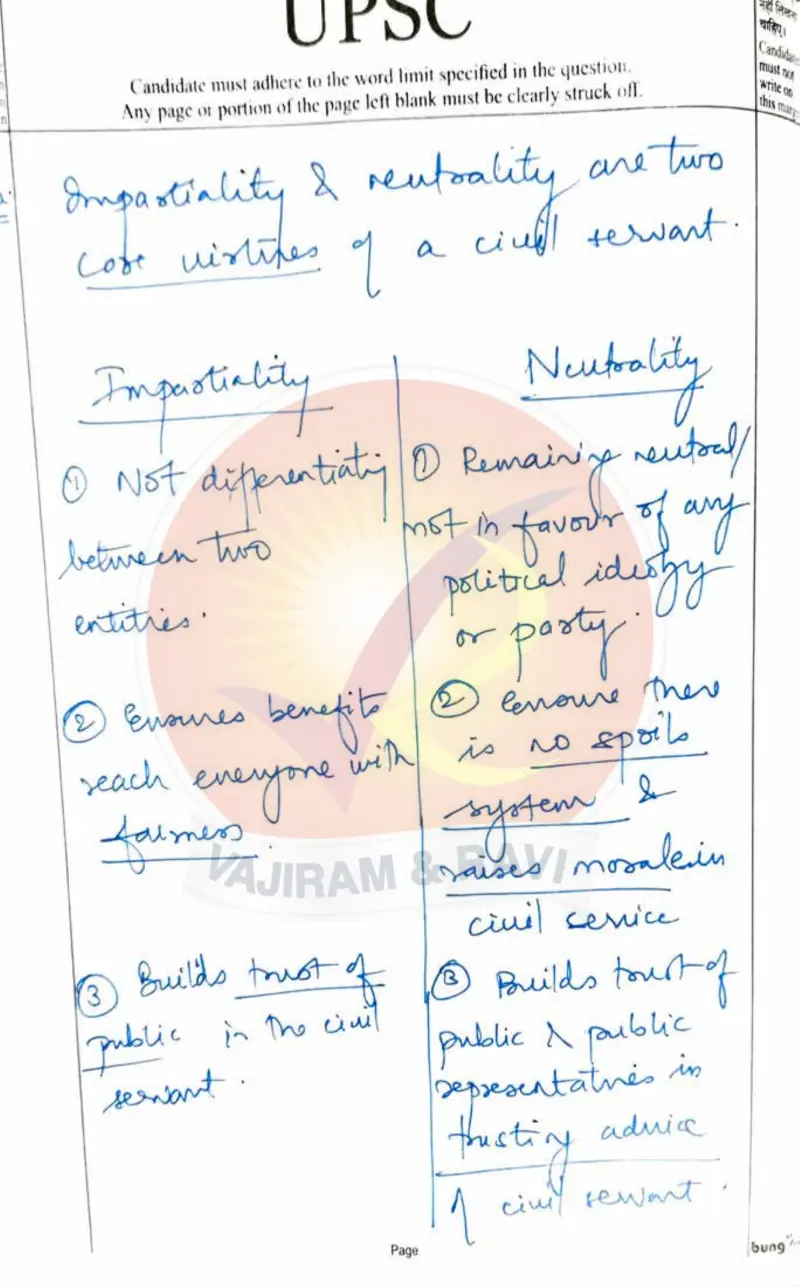 UPSC
Candidate must adhere to the word limit specified in the question.
Any page or portion of the page left blank must be clearly struck off.
नहीं लिखना
चाहिए।
Candidates
must not
write on
this margin
Impartiality & neutrality are two
core virtues of a civil servant.
Impartiality
① Not differentiating
between two
entities.
② Ensures benefits
reach everyone with
fairness.
③ Builds trust of
public in the civil
servant.
Neutrality
① Remaining neutral/
not in favour of any
political ideology
or party.
② Ensure there
is no spoils
system &
raises morale in
civil service
③ Builds trust of
public & public
representatives in
trusting advice
of civil servant.
VAJIRAM & RAVI
Page